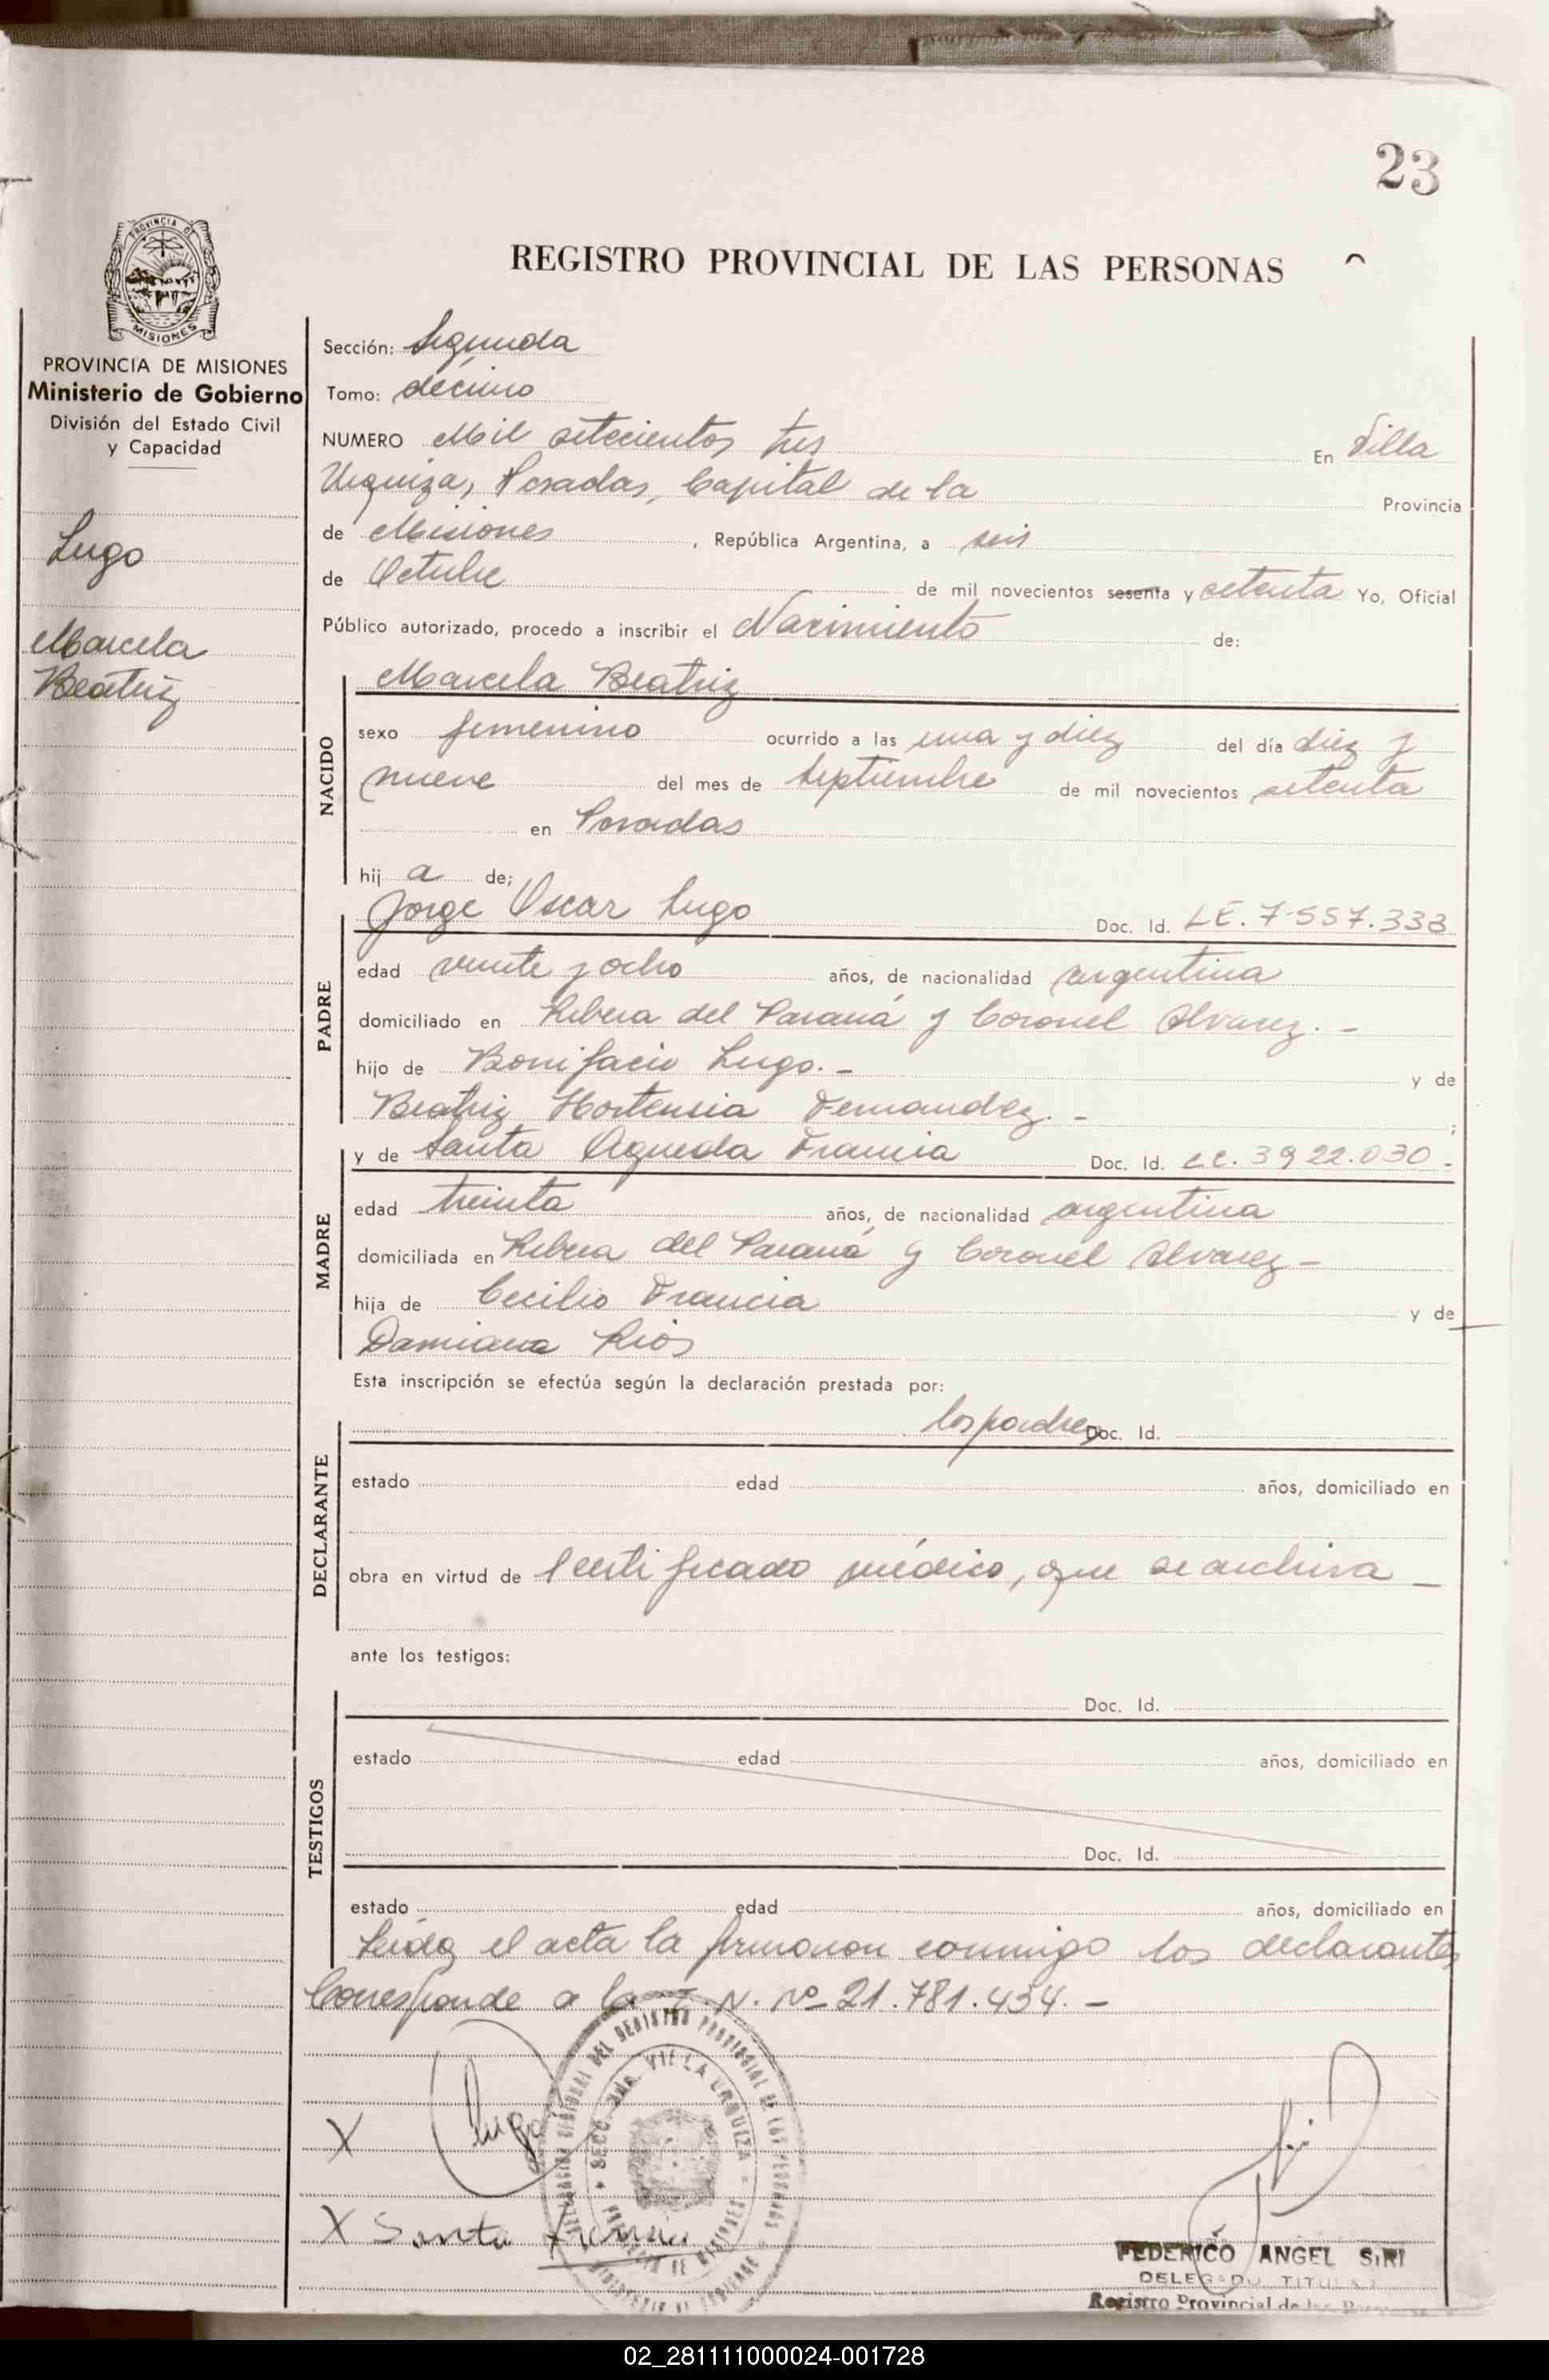 23
PROVINCIA DE
MISIONES
REGISTRO PROVINCIAL DE LAS PERSONAS
PROVINCIA DE MISIONES
Ministerio de Gobierno
División del Estado Civil
y Capacidad
Lugo
Marcela
Beatriz
Sección: Segunda
Tomo: décimo
NUMERO Mil setecientos tres En Villa
Urquiza, Posadas, Capital de la Provincia
de Misiones, República Argentina, a seis
de Octubre de mil novecientos sesenta y setenta Yo, Oficial
Público autorizado, procedo a inscribir el Nacimiento de:
NACIDO
Marcela Beatriz
sexo femenino ocurrido a las una y diez del día diez y
nueve del mes de Septiembre de mil novecientos setenta
en Posadas
hij a de;
PADRE
Jorge Oscar Lugo Doc. Id. LE. 7.557.338
edad veinte y ocho años, de nacionalidad argentina
domiciliado en Ribera del Paraná y Coronel Alvarez. -
hijo de Bonifacio Lugo. - y de
Beatriz Hortensia Fernandez. - ;
MADRE
y de Santa Agueda Francia Doc. Id. L.C. 3922.030 -
edad treinta años, de nacionalidad argentina
domiciliada en Ribera del Paraná y Coronel Alvarez -
hija de Cecilio Francia y de
Damiana Rios
Esta inscripción se efectúa según la declaración prestada por:
DECLARANTE
los padres Doc. Id.
estado edad años, domiciliado en
obra en virtud de certificado médico, que se archiva -
ante los testigos:
TESTIGOS
Doc. Id.
estado edad años, domiciliado en
Doc. Id.
estado edad años, domiciliado en
Leída el acta la firmaron conmigo los declarantes
Corresponde a la I. N. Nº 21.781.454. -
X Lugo
X Santa Francia
DEL REGISTRO PROVINCIAL DE LAS PERSONAS
SECC. 2da. VILLA URQUIZA
PROVINCIA DE MISIONES
MINISTERIO DE GOBIERNO
FEDERICO ANGEL SIRI
DELEGADO TITULAR
Registro Provincial de las Personas
02_281111000024-001728